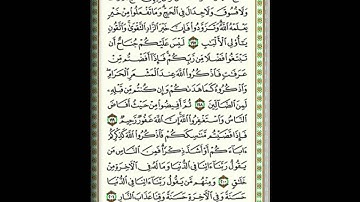 وَلَا فُسُوقَ وَلَا جِدَالَ فِي الْحَجِّ وَمَا تَفْعَلُوا مِنْ خَيْرٍ
يَعْلَمْهُ اللَّهُ وَتَزَوَّدُوا فَإِنَّ خَيْرَ الزَّادِ التَّقْوَىٰ وَاتَّقُونِ
يَا أُولِي الْأَلْبَابِ ۝١٩٧ لَيْسَ عَلَيْكُمْ جُنَاحٌ أَنْ
تَبْتَغُوا فَضْلًا مِنْ رَبِّكُمْ فَإِذَا أَفَضْتُمْ مِنْ
عَرَفَاتٍ فَاذْكُرُوا اللَّهَ عِنْدَ الْمَشْعَرِ الْحَرَامِ
وَاذْكُرُوهُ كَمَا هَدَاكُمْ وَإِنْ كُنْتُمْ مِنْ قَبْلِهِ
لَمِنَ الضَّالِّينَ ۝١٩٨ ثُمَّ أَفِيضُوا مِنْ حَيْثُ أَفَاضَ
النَّاسُ وَاسْتَغْفِرُوا اللَّهَ إِنَّ اللَّهَ غَفُورٌ رَحِيمٌ ۝١٩٩
فَإِذَا قَضَيْتُمْ مَنَاسِكَكُمْ فَاذْكُرُوا اللَّهَ كَذِكْرِكُمْ
آبَاءَكُمْ أَوْ أَشَدَّ ذِكْرًا فَمِنَ النَّاسِ مَنْ
يَقُولُ رَبَّنَا آتِنَا فِي الدُّنْيَا وَمَا لَهُ فِي الْآخِرَةِ مِنْ
خَلَاقٍ ۝٢٠٠ وَمِنْهُمْ مَنْ يَقُولُ رَبَّنَا آتِنَا فِي الدُّنْيَا
حَسَنَةً وَفِي الْآخِرَةِ حَسَنَةً وَقِنَا عَذَابَ النَّارِ ۝٢٠١